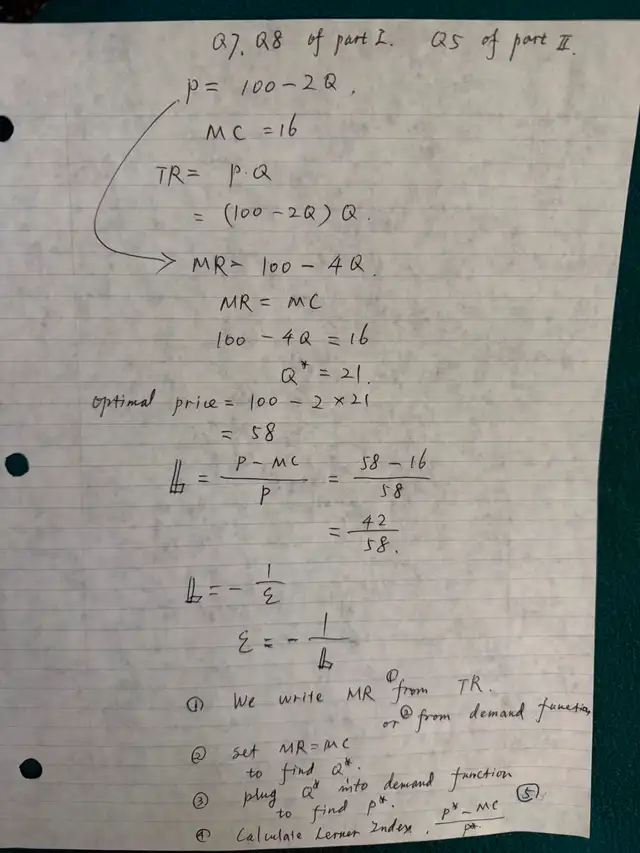 Q7, Q8 of part I. Q5 of part II.
P = 100 - 2Q,
MC = 16
TR = P·Q
= (100 - 2Q) Q.
MR = 100 - 4Q.
MR = MC
100 - 4Q = 16
Q* = 21.
optimal price = 100 - 2 × 21
= 58
L = (P - MC) / P = (58 - 16) / 58
= 42 / 58.
L = - 1 / ε
ε = - 1 / L
① We write MR ① from TR.
or ② from demand function
② set MR = MC
to find Q*.
③ plug Q* into demand function
to find P*. ⑤
④ Calculate Lerner Index. (P* - MC) / P*